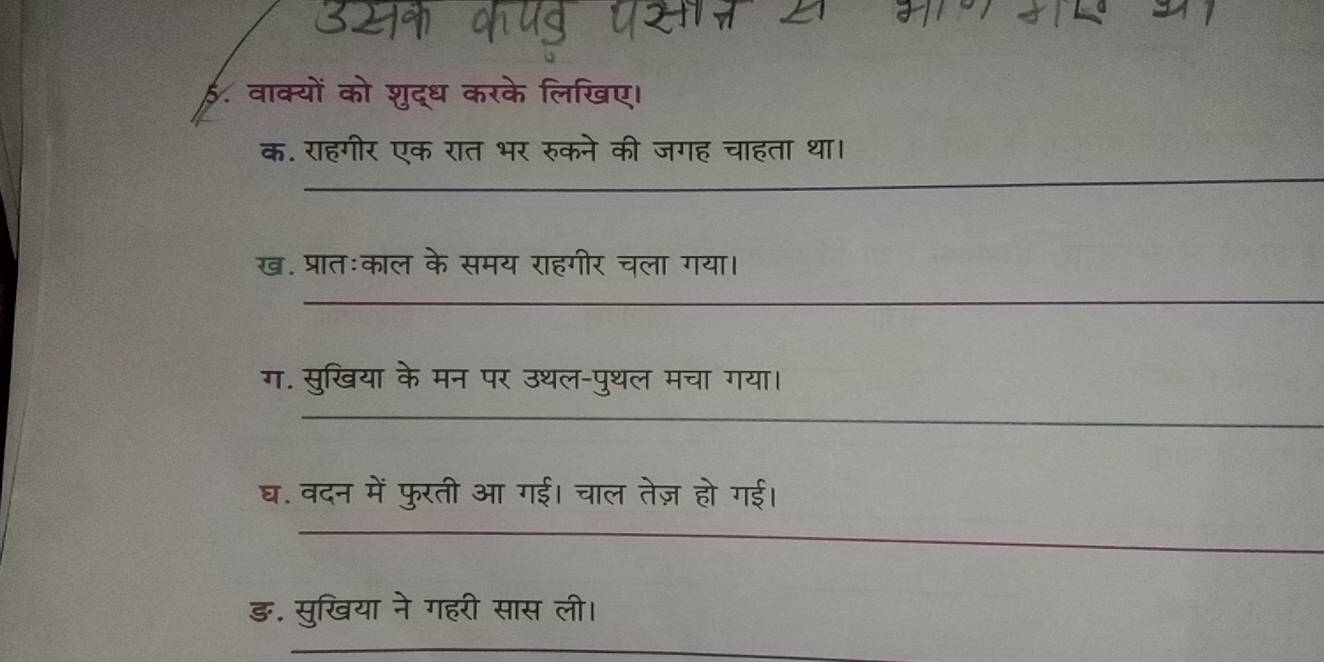 उसके कपड़े पसीने से
5. वाक्यों को शुद्ध करके लिखिए।
क. राहगीर एक रात भर रुकने की जगह चाहता था।
ख. प्रातःकाल के समय राहगीर चला गया।
ग. सुखिया के मन पर उथल-पुथल मचा गया।
घ. वदन में फुरती आ गई। चाल तेज़ हो गई।
ङ. सुखिया ने गहरी सास ली।